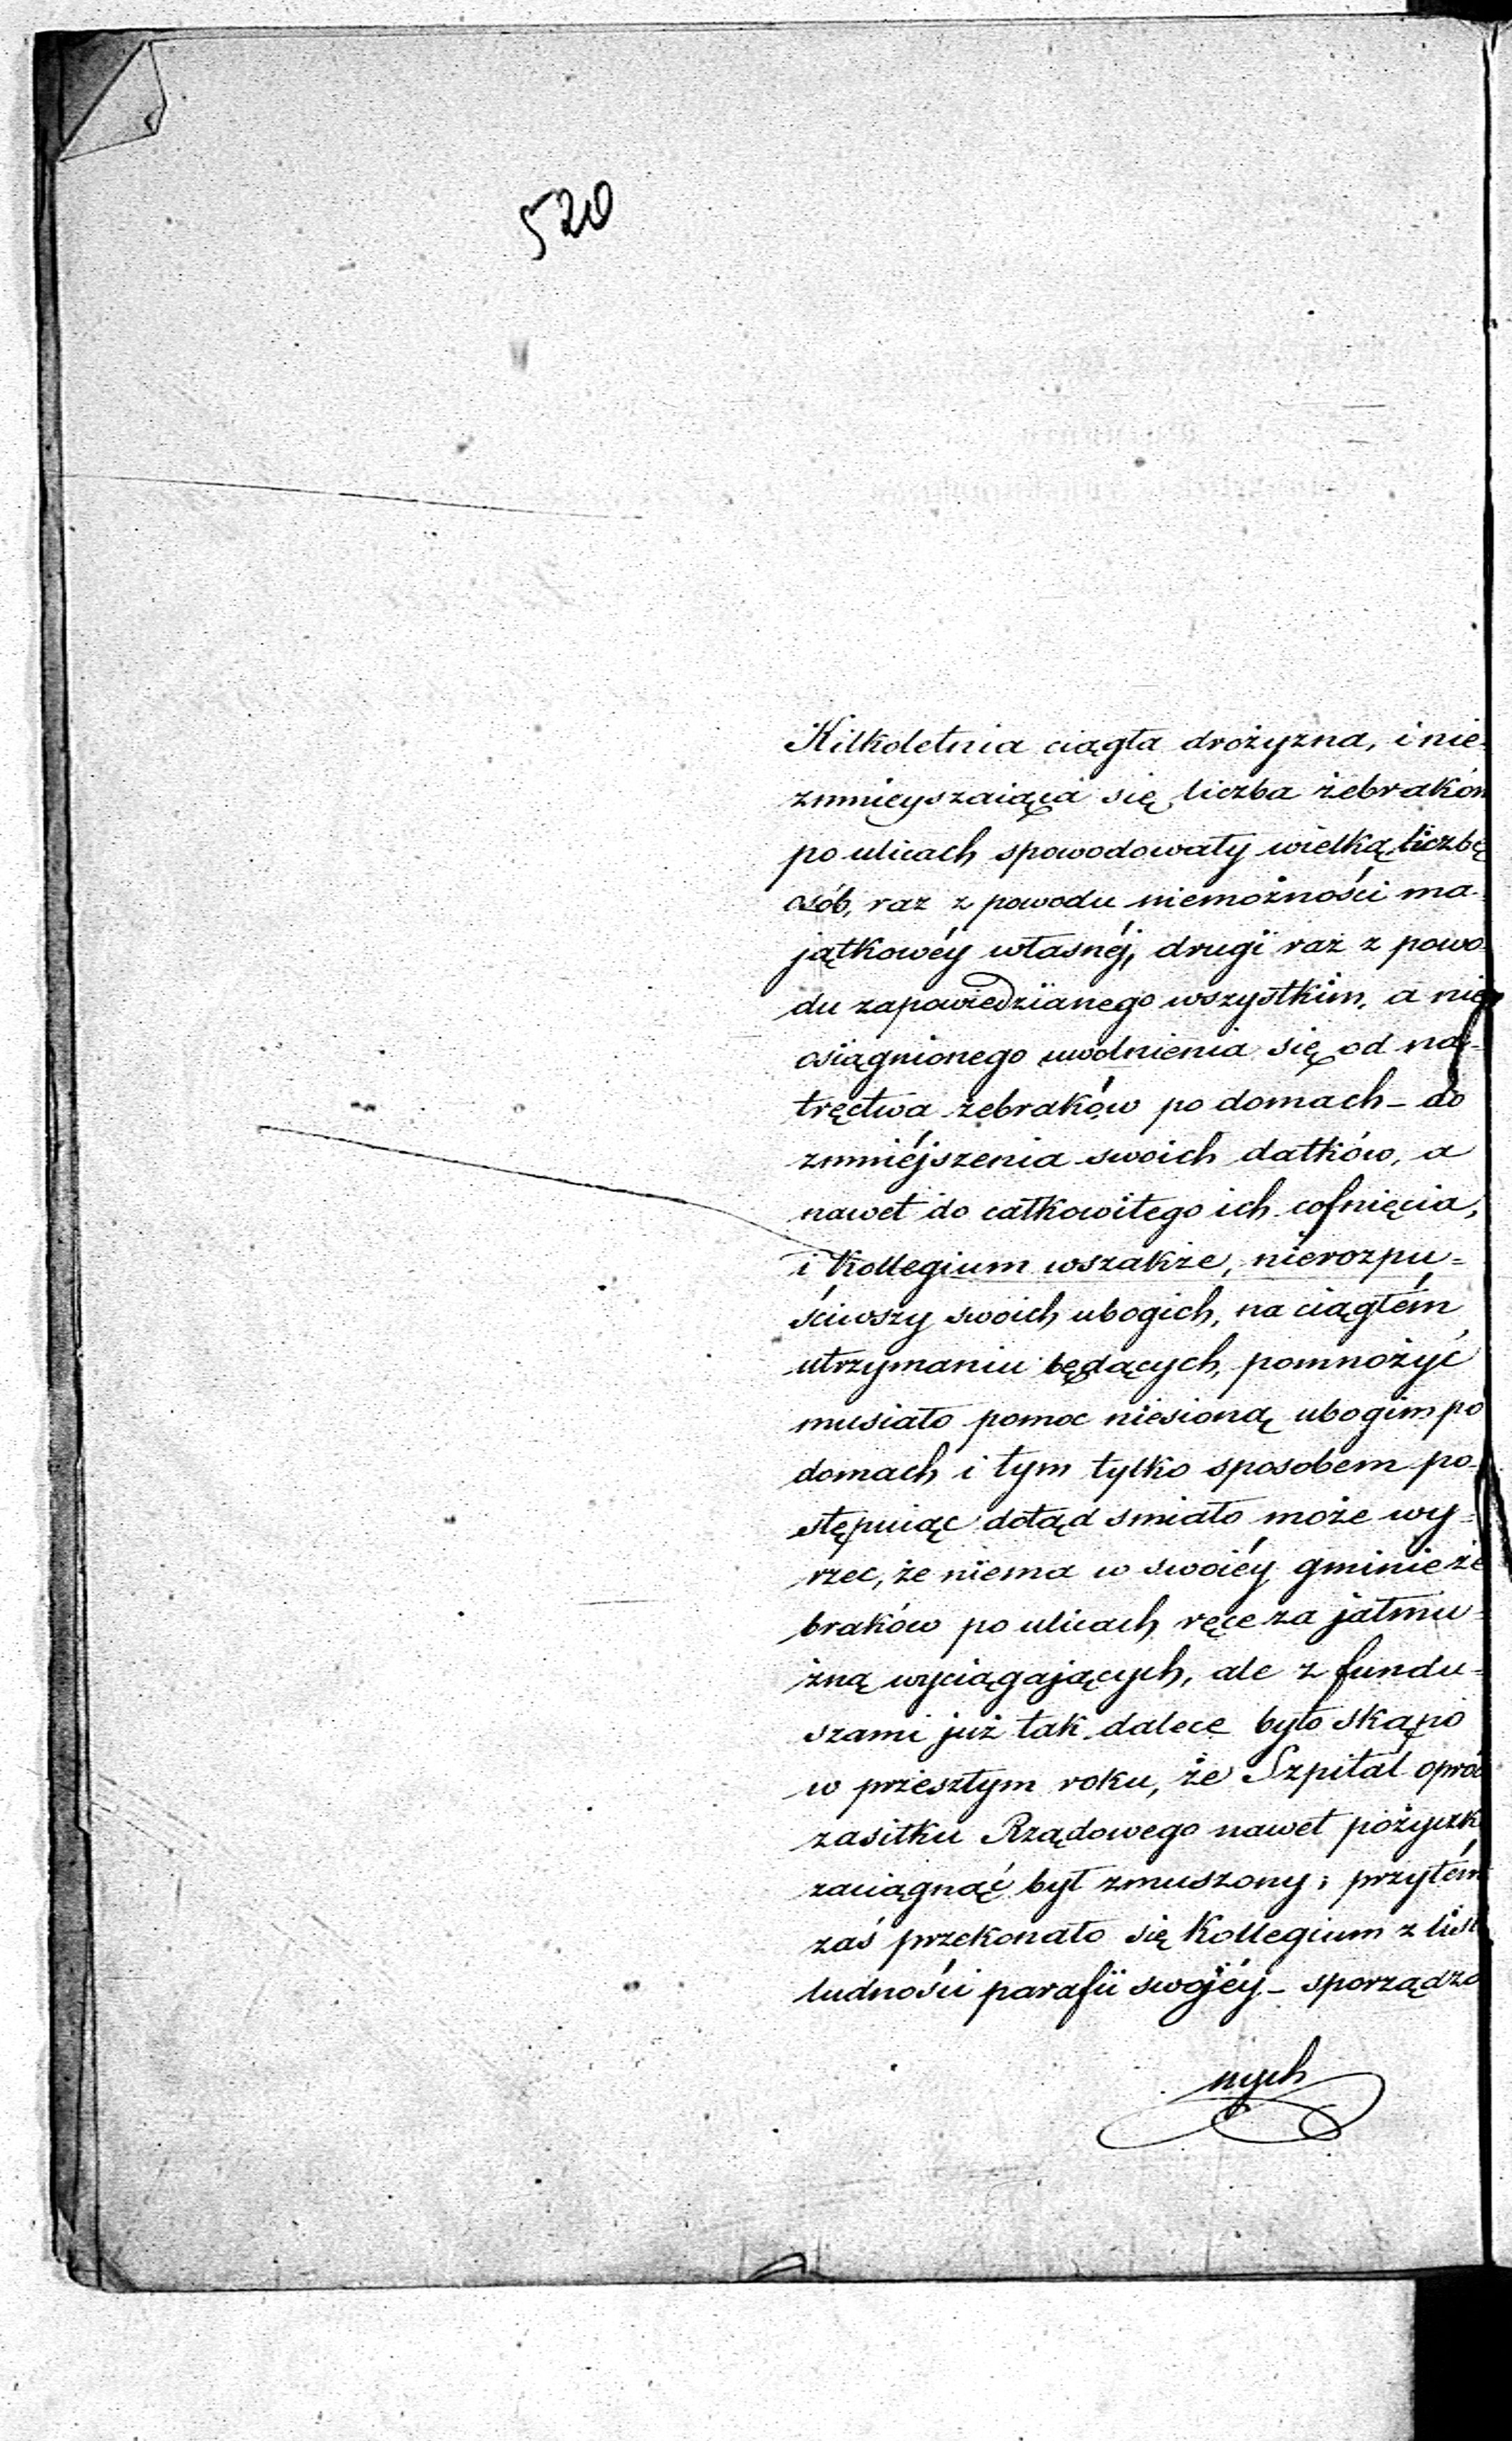 520
Kilkoletnia ciągła drożyzna, i nie-
zmnieyszaiąca się liczba żebraków
po ulicach spowodowały wielką liczbę
osób, raz z powodu niemożności ma-
jątkowéy własnéj, drugi raz z powo-
du zapowiedzianego wszystkim, a nie
osiągnionego uwolnienia się od na-
tręctwa żebraków po domach – do
zmniéjszenia swoich datków, a
nawet do całkowitego ich cofnięcia,
i Kollegium wszakże, nierozpu=
ściwszy swoich ubogich, na ciągłém
utrzymaniu będących, pomnożyć
musiało pomoc niesioną ubogim po
domach i tym tylko sposobem po-
stępuiąc dotąd smiało może wy=
rzec, że niema w swoiéy gminie że
braków po ulicach ręce za jałmu=
żną wyciągających, ale z fundu=
szami już tak dalece było skąpo
w przeszłym roku, że Szpital opróc
zasiłku Rządowego nawet pożyczk
zaciągnąć był zmuszony; przytém
zaś przekonało się Kollegium z list
ludności parafii swojéy – sporządzo
nych